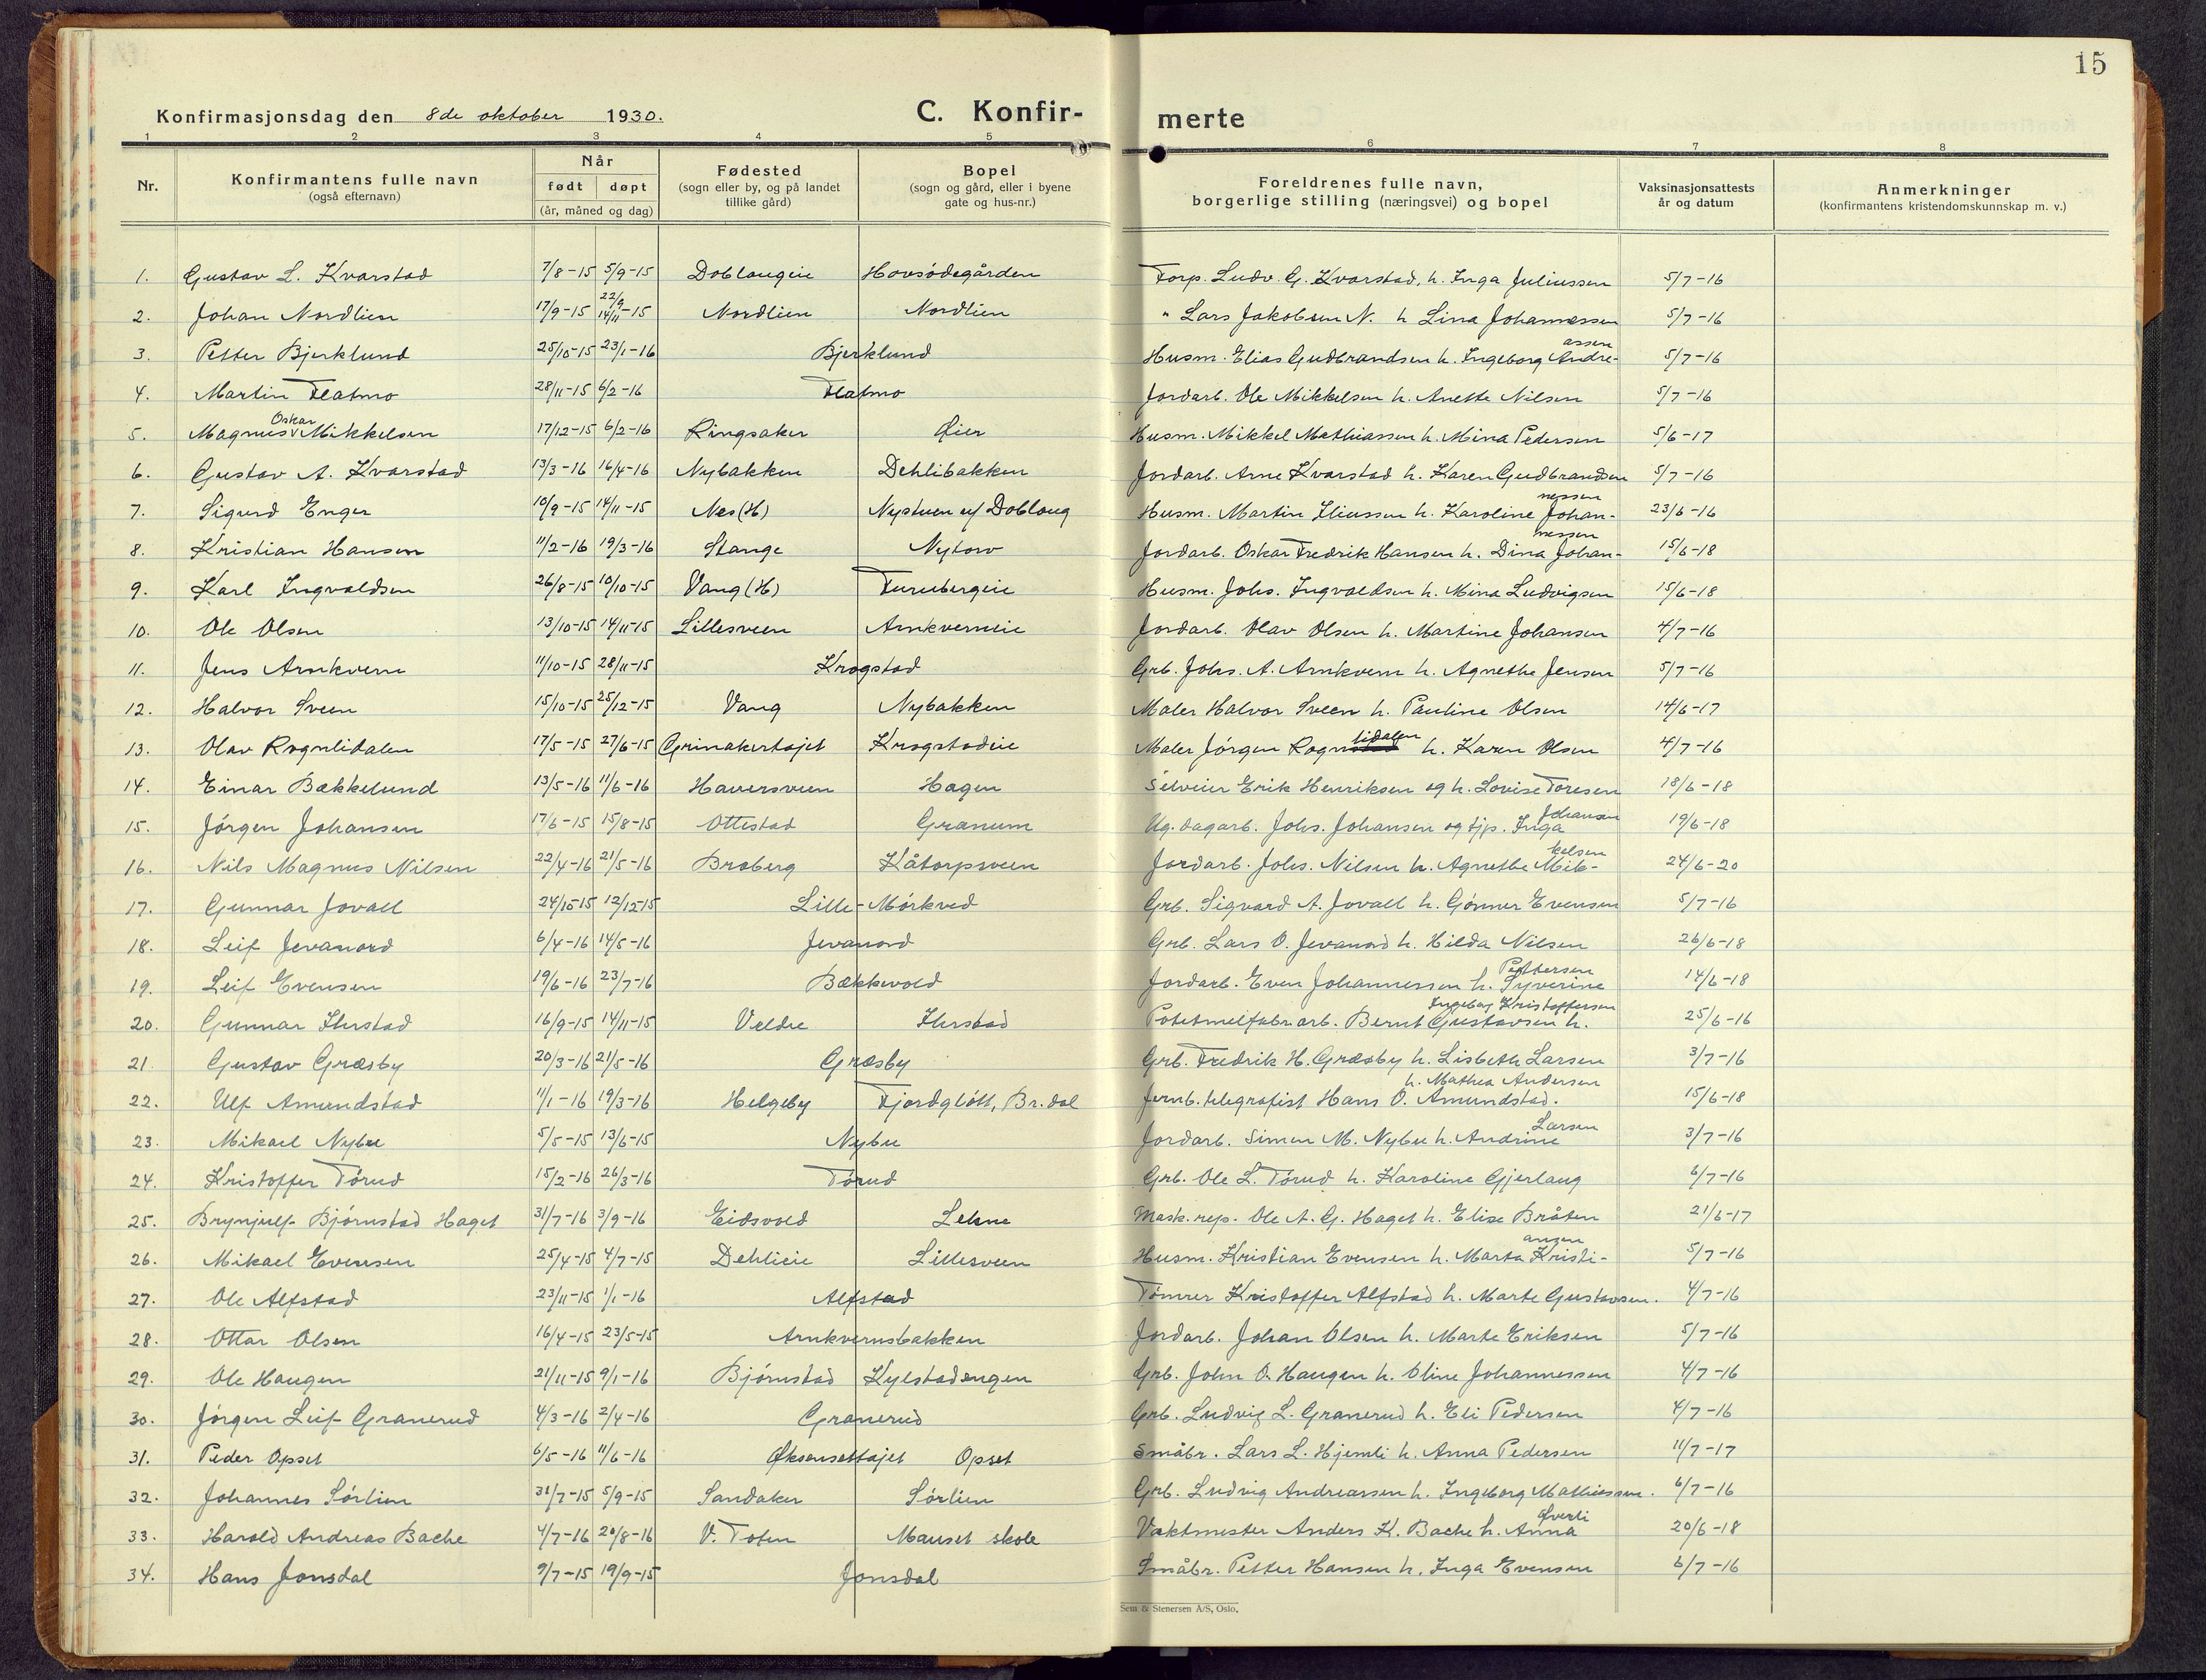 15
Konfirmasjonsdag den 8de oktober 1930. C. Konfir- merte
1 2 3 4 5 6 7 8
Nr. Konfirmantens fulle navn (også efternavn) Når født døpt (år, måned og dag) Fødested (sogn eller by, og på landet tillike gård) Bopel (sogn og gård, eller i byene gate og hus-nr.) Foreldrenes fulle navn, borgerlige stilling (næringsvei) og bopel Vaksinasjonsattests år og datum Anmerkninger (konfirmantens kristendomskunnskap m. v.)
1. Gustav L. Kvarstad 7/8-15 5/9-15 Doblougeie Hovsødegården Torp. Ludv. G. Kvarstad, h. Inga Juliussen 5/7-16
2. Johan Nordlien 17/9-15 22/9 14/11-15 Nordlien Nordlien " Lars Jakobsen N. h Lina Johannessen 5/7-16
3. Petter Bjerklund 25/10-15 23/1-16 Bjerklund Husm. Elias Gudbrandsen h. Ingeborg Andreassen 5/7-16
4. Martin Flatmo 28/11-15 6/2-16 Flatmo Jordarb. Ole Mikkelsen h. Anette Nilsen 5/7-16
5. Magnus Oskar Mikkelsen 17/12-15 6/2-16 Ringsaker Øier Husm. Mikkel Mathiassen h. Mina Pedersen 5/6-17
6. Gustav A. Kvarstad 13/3-16 16/4-16 Nybakken Dehlibakken Jordarb. Arne Kvarstad h. Karen Gudbrandsen 5/7-16
7. Sigurd Enger 10/9-15 14/11-15 Nes (H) Nystuen u/ Dobloug Husm. Martin Iliussen h. Karoline Johannessen 23/6-16
8. Kristian Hansen 11/2-16 19/3-16 Stange Nytorv Jordarb. Oskar Fredrik Hansen h. Dina Johannessen 15/6-18
9. Karl Ingvaldsen 26/8-15 10/10-15 Vang (H) Furubergeie Husm. Johs. Ingvaldsen h. Mina Ludvigsen 15/6-18
10. Ole Olsen 13/10-15 14/11-15 Lillesveen Arnkverneie Jordarb. Olav Olsen h. Martine Johansen 4/7-16
11. Jens Arnkvern 11/10-15 28/11-15 Krogstad Grb. Johs. A. Arnkvern h. Agnethe Jensen 5/7-16
12. Halvor Sveen 15/10-15 25/12-15 Vang Nybakken Maler Halvor Sveen h. Pauline Olsen 14/6-17
13. Olav Rognlidalen 17/5-15 27/6-15 Grinakertajet Krogstadeie Maler Jörgen Rognlidalen h. Karen Olsen 4/7-16
14. Einar Bækkelund 13/5-16 11/6-16 Haversveen Hagen Selveier Erik Henriksen og h. Lovise Toresen 18/6-18
15. Jörgen Johansen 17/6-15 15/8-15 Ottestad Granum Ug. dagarb. Johs. Johansen og tjp. Inga Johansen 19/6-18
16. Nils Magnus Nilsen 22/4-16 21/5-16 Broberg Kåtorpsveen Jordarb. Johs. Nilsen h. Agnethe Mikkelsen 24/6-20
17. Gunnar Jovall 24/10-15 12/12-15 Lille-Mörkved Grb. Sigvard A. Jovall h. Gönner Evensen 5/7-16
18. Leif Jevanord 6/4-16 14/5-16 Jevanord Grb. Lars O. Jevanord h. Hilda Nilsen 26/6-18
19. Leif Evensen 19/6-16 23/7-16 Bækkevold Jordarb. Even Johannessen h. Syverine Pettersen 14/6-18
20. Gunnar Ihrstad 16/9-15 14/11-15 Veldre Ihrstad Potetmelfabr.arb. Bernt Gustavsen h. Ingeborg Kristoffersen 25/6-16
21. Gustav Græsby 20/3-16 21/5-16 Græsby Grb. Fredrik H. Græsby h. Lisbeth Larsen 3/7-16
22. Ulf Amundstad 11/1-16 19/3-16 Helgeby Fjordglött, Br.dal Jernb.telegrafist Hans O. Amundstad. h. Mathea Andersen 15/6-18
23. Mikael Nybu 5/5-15 13/6-15 Nybu Jordarb. Simen M. Nybu h. Andrine Larsen 3/7-16
24. Kristoffer Törud 15/2-16 26/3-16 Törud Grb. Ole L. Törud h. Karoline Gjerlaug 6/7-16
25. Brynjulf Bjørnstad Haget 31/7-16 3/9-16 Eidsvold Lekne Mask.rep. Ole A. G. Haget h. Elise Bråten 21/6-17
26. Mikael Evensen 25/4-15 4/7-15 Dehlieie Lillesveen Husm. Kristian Evensen h. Marta Kristiansen 5/7-16
27. Ole Alfstad 23/11-15 1/1-16 Alfstad Tömrer Kristoffer Alfstad h. Marte Gustavsen. 4/7-16
28. Ottar Olsen 16/4-15 23/5-15 Arnkvernsbakken Jordarb. Johan Olsen h. Marte Eriksen 5/7-16
29. Ole Haugen 21/11-15 9/1-16 Bjørnstad Kylstadengen Grb. John O. Haugen h. Oline Johannessen 4/7-16
30. Jörgen Leif Granerud 4/3-16 2/4-16 Granerud Grb. Ludvig L. Granerud h. Eli Pedersen 4/7-16
31. Peder Opset 6/5-16 11/6-16 Øksensettajet Opset Småbr. Lars L. Hjemli h. Anna Pedersen 11/7-17
32. Johannes Sörlien 31/7-15 5/9-15 Sandaker Sörlien Grb. Ludvig Andreassen h. Ingeborg Mathiassen. 6/7-16
33. Harald Andreas Bache 4/7-16 20/8-16 V. Toten Mauset skole Vaktmester Anders K. Bache h. Anna Øverli 20/6-18
34. Hans Jonsdal 9/7-15 19/9-15 Jonsdal Småbr. Petter Hansen h. Inga Evensen 6/7-16
Sem & Stenersen A/S, Oslo.